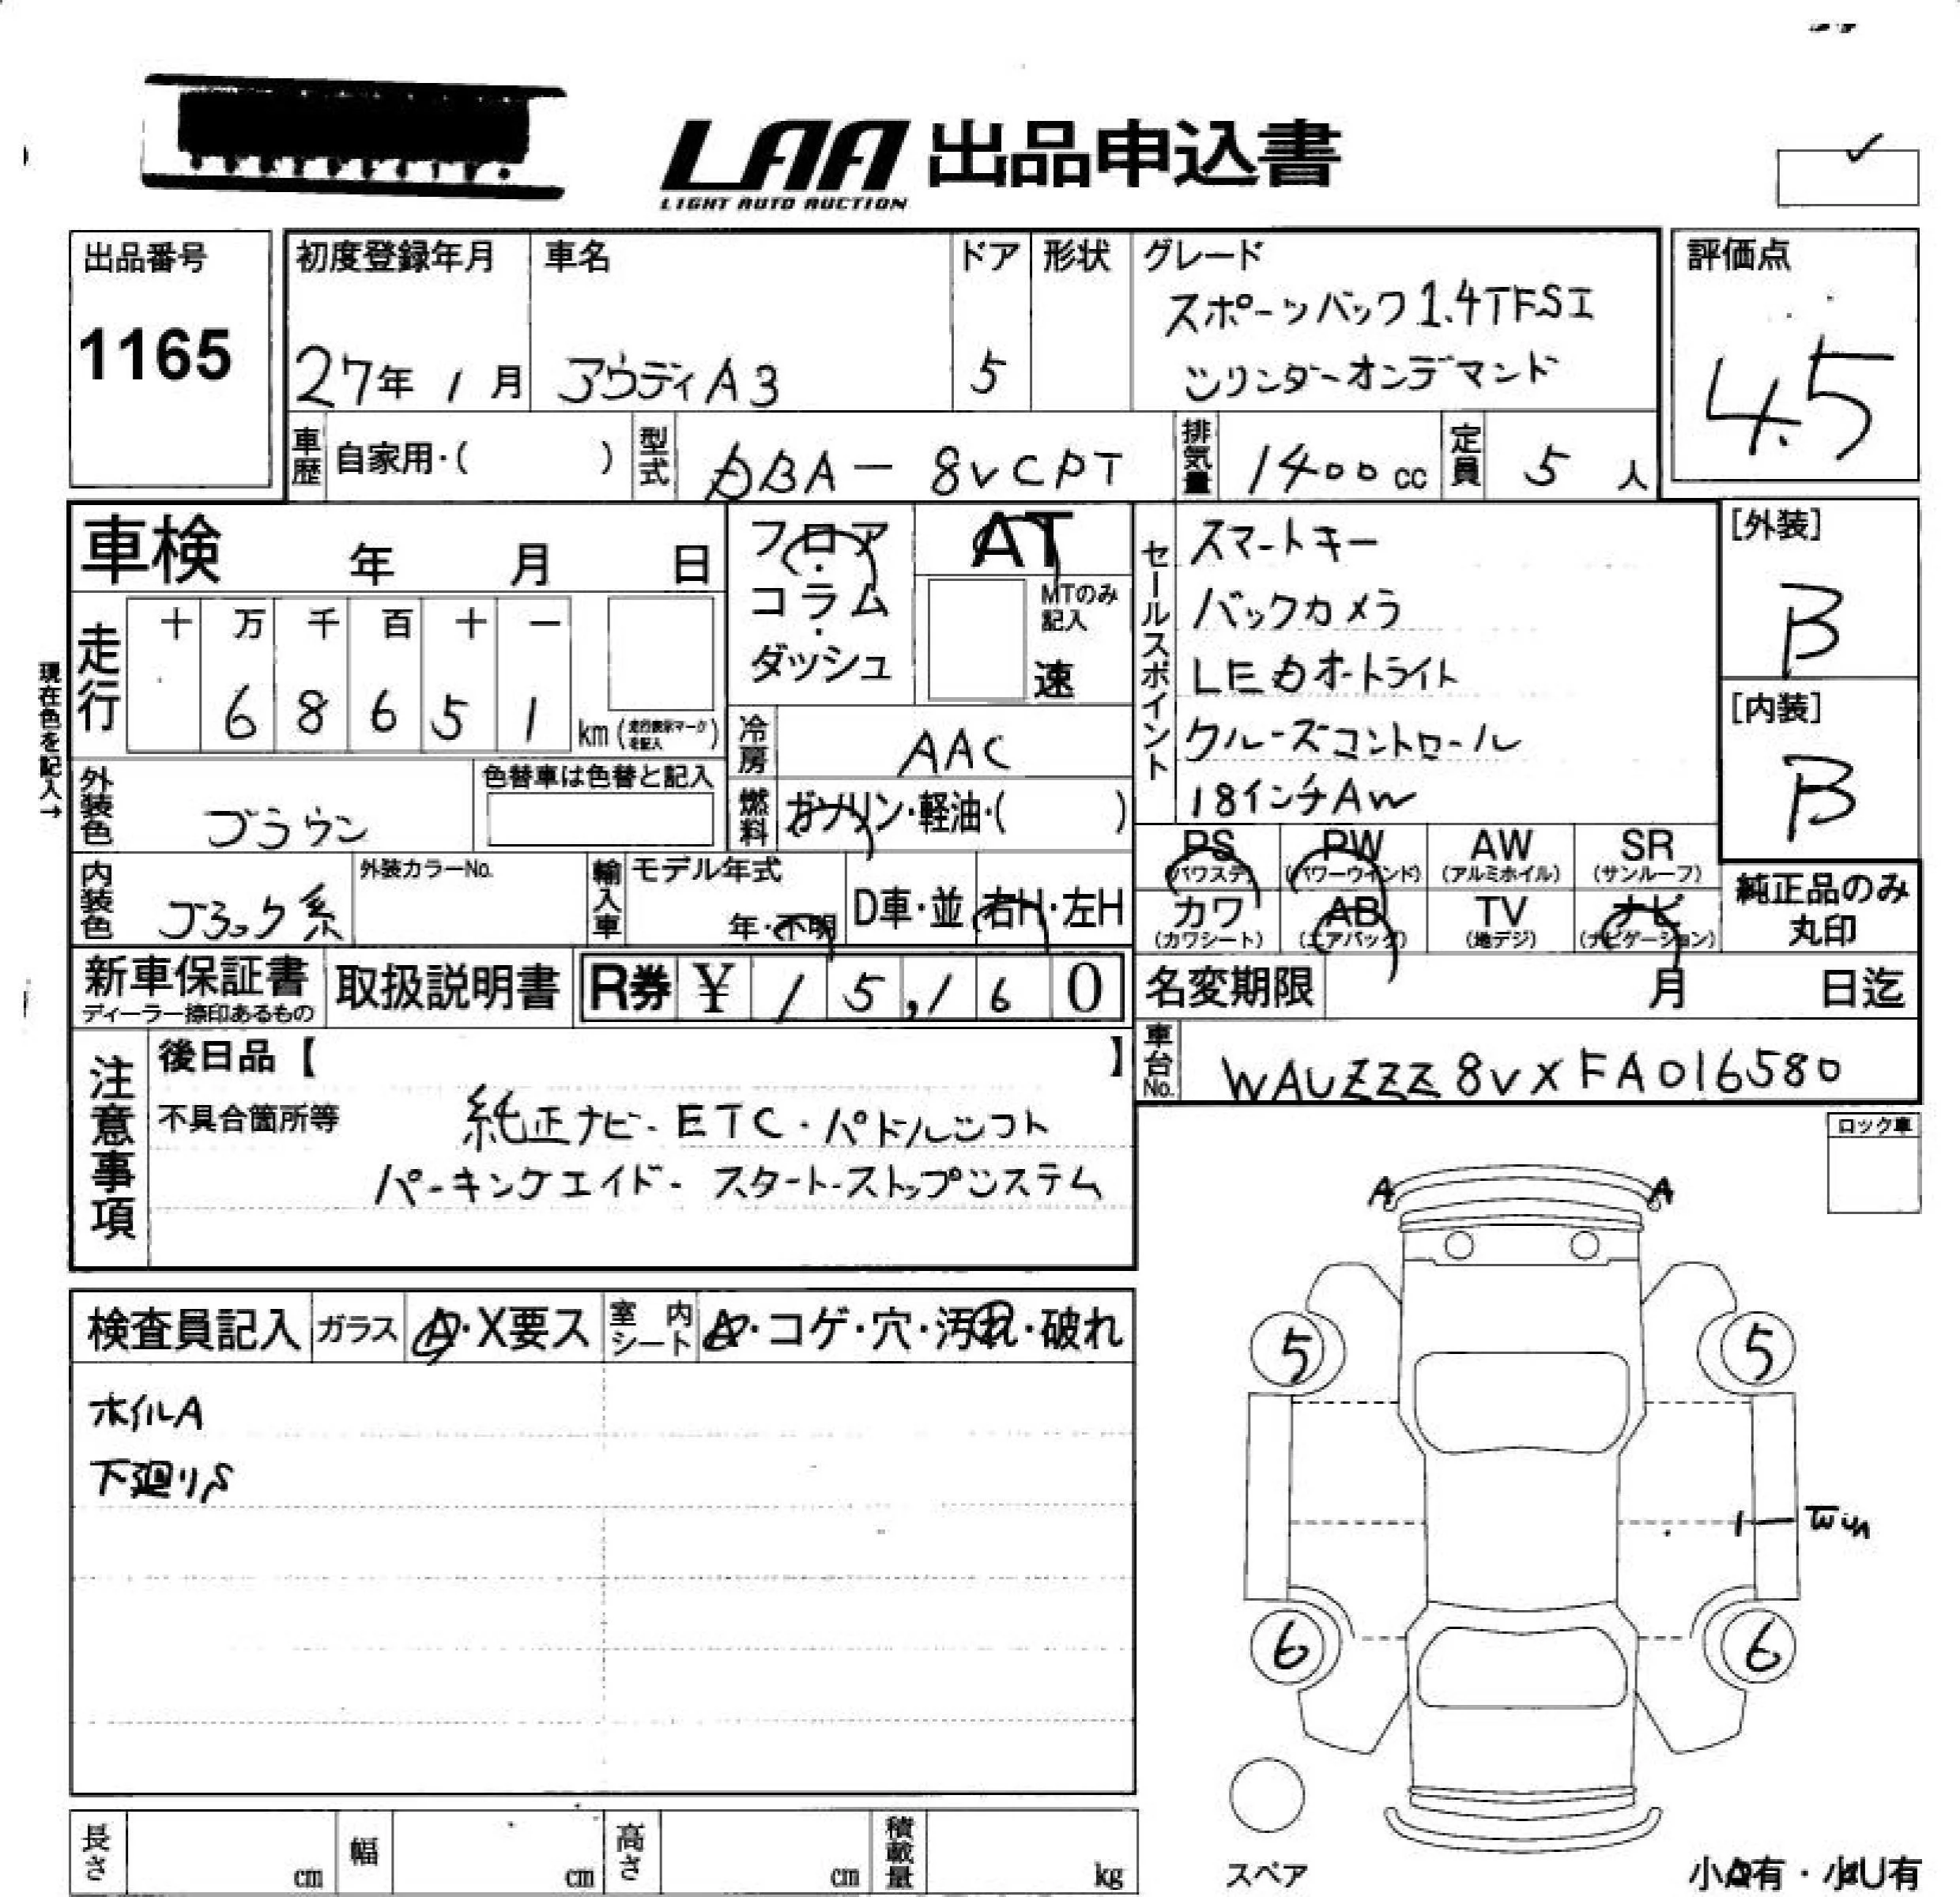 LAA 出品申込書
LIGHT AUTO AUCTION
出品番号
1165
初度登録年月
27年 1月
車名
アウディA3
ドア
5
形状
グレード
スポーツバック1.4TFSI
シリンダーオンデマンド
評価点
4.5
車歴
自家用・( )
型式
DBA-8VCPT
排気量
1400cc
定員
5人
車検 年 月 日
走行
十 万 千 百 十 一
6 8 6 5 1
km(走行表示マークを記入)
現在色を記入→
外装色
ブラウン
色替車は色替と記入
内装色
ブラック系
外装カラーNo.
フロア・
コラム・
ダッシュ
AT
MTのみ
記入
速
冷房
AAC
燃料
ガソリン・軽油・( )
輸入車
モデル年式
年・不明
D車・並
右H・左H
セールスポイント
スマートキー
バックカメラ
LEDオートライト
クルーズコントロール
18インチAW
[外装]
B
[内装]
B
PS
(パワステ)
PW
(パワーウインド)
AW
(アルミホイル)
SR
(サンルーフ)
カワ
(カワシート)
AB
(エアバッグ)
TV
(地デジ)
ナビ
(ナビゲーション)
純正品のみ
丸印
新車保証書
ディーラー捺印あるもの
取扱説明書
R券 ¥ 15,160
名変期限 月 日迄
車台No.
WAUZZZ8VXFA016580
注意事項
後日品【 】
不具合箇所等
純正ナビ・ETC・パドルシフト
パーキングエイド・スタートストップシステム
ロック車
検査員記入
ガラス
A・X要ス
室内
シート
A・コゲ・穴・汚れ・破れ
ホイルA
下廻りS
A A
5 5
6 6
スペア
小A有・小U有
長さ cm
幅 cm
高さ cm
積載量 kg